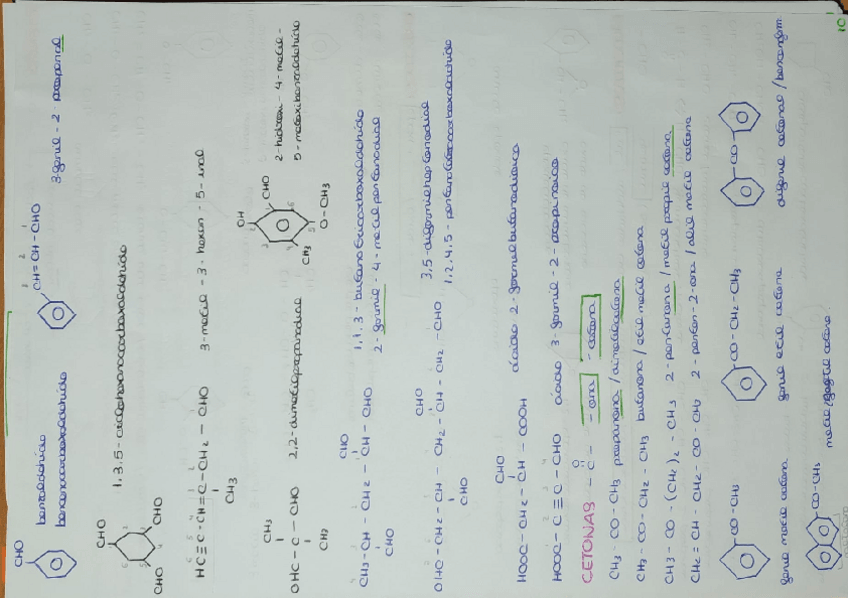 CHO
benzaldehído
bencenocarboxaldehído
CH=CH-CHO
3-fenil-2-propenal
CHO
CHO
CHO
1,3,5-ciclohexanocarboxaldehído
HC≡C-CH=C-CH₂-CHO
CH₃
3-metil-3-hexen-5-inal
CH₃
OHC-C-CHO
CH₃
2,2-dimetilpropanodial
OH
CHO
CH₃
O-CH₃
2-hidroxi-4-metil-
5-metoxibenzaldehído
CHO
CH₃-CH-CH₂-CH-CHO
CHO
1,1,3-butanotricarboxaldehído
2-formil-4-metilpentanodial
CHO
OHC-CH₂-CH-CH₂-CH-CH₂-CHO
CHO
3,5-diformilheptanodial
1,2,4,5-pentanotetracarboxaldehído
CHO
HOOC-CH₂-CH-COOH
ácido 2-formilbutanodioico
HOOC-C≡C-CHO
ácido 3-formil-2-propinoico
CETONAS
O
-C-
-ona
-cetona
CH₃-CO-CH₃ propanona/dimetilcetona
CH₃-CO-CH₂-CH₃ butanona/etil metil cetona
CH₃-CO-(CH₂)₂-CH₃ 2-pentanona/metil propil cetona
CH₂=CH-CH₂-CO-CH₃ 2-penten-2-ona/alil metil cetona
CO-CH₃
fenil metil cetona
CO-CH₂-CH₃
fenil etil cetona
CO
difenil cetona/
CO-CH₃
metil
cetona
10